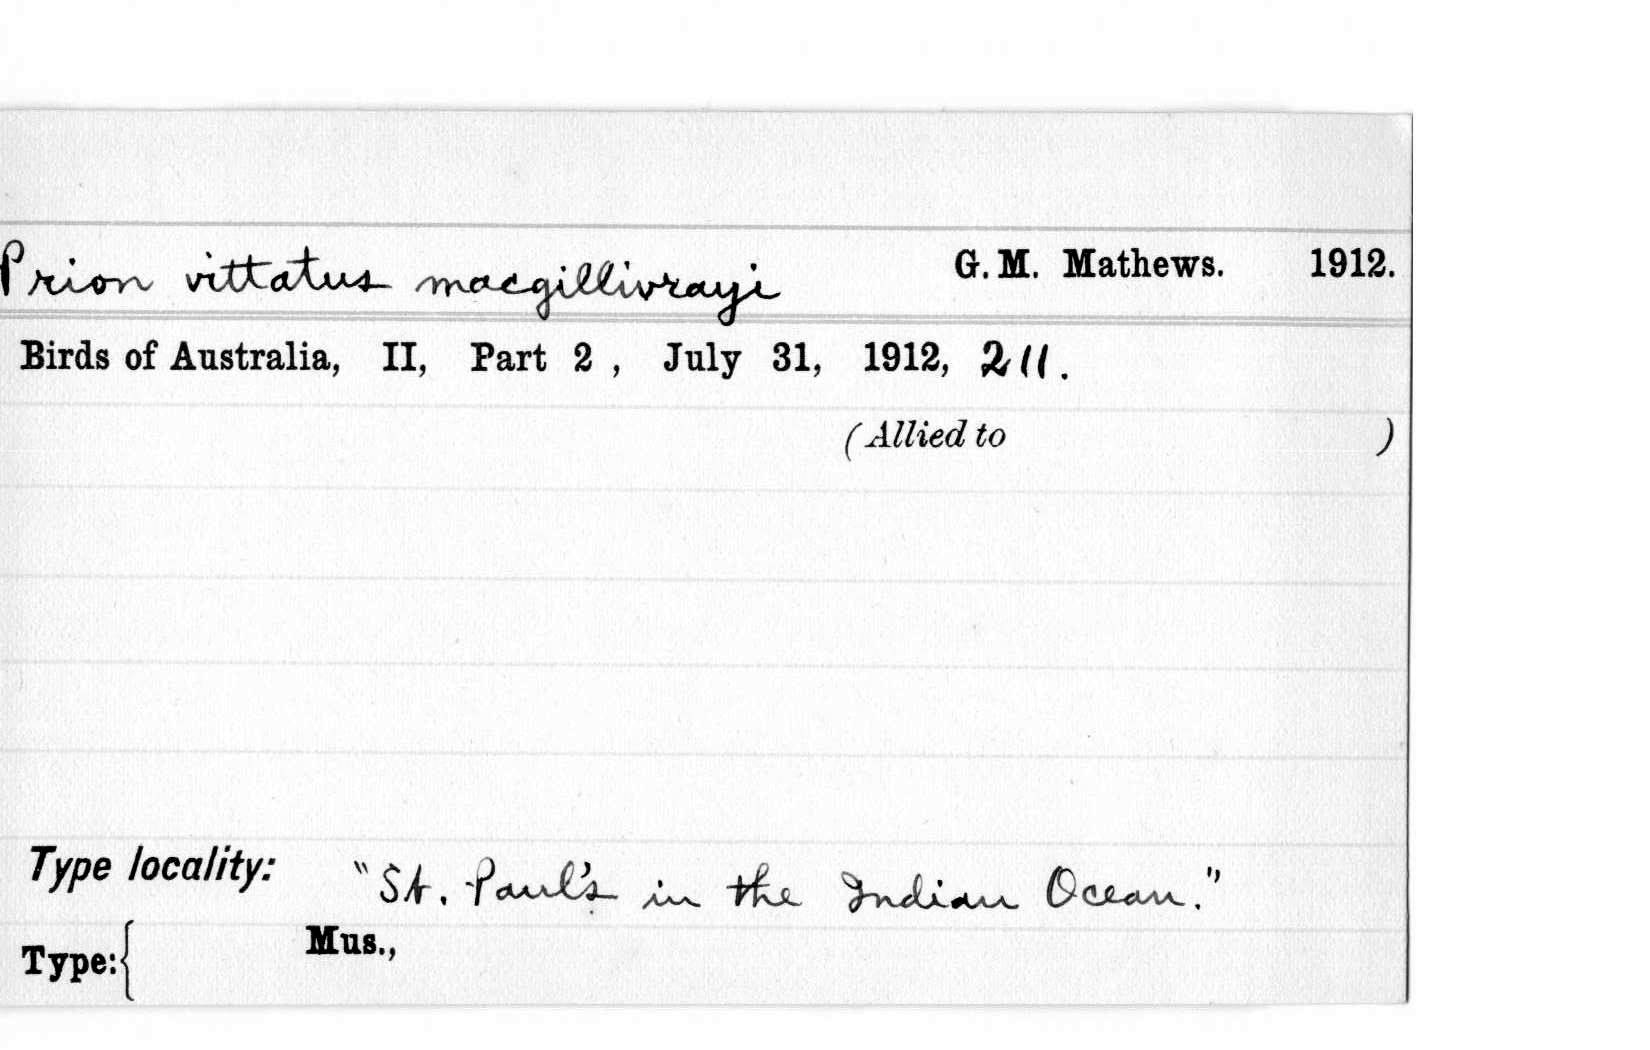 Prion vittatus macgillivrayi G. M. Mathews. 1912.
Birds of Australia, II, Part 2 , July 31, 1912, 211.
(Allied to )
Type locality: "St. Paul's in the Indian Ocean."
Type:{ Mus.,